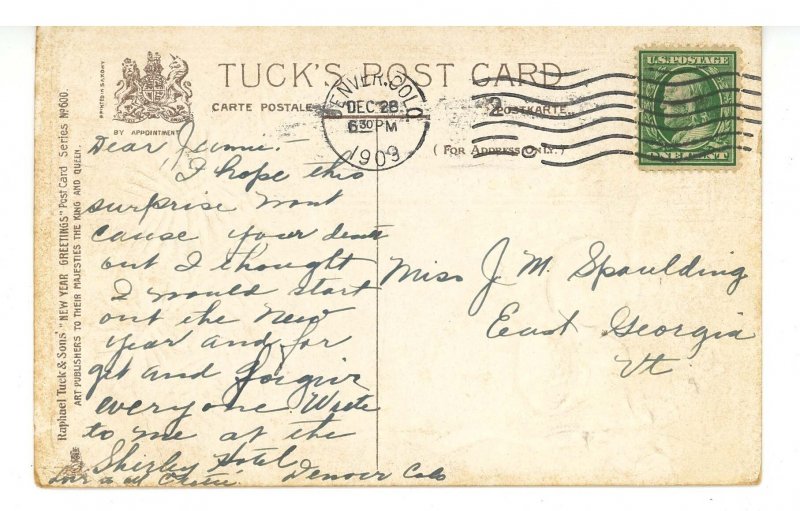 TUCK'S POST CARD
CARTE POSTALE
POSTKARTE
(FOR ADDRESS ONLY.)
BY APPOINTMENT
PRINTED IN SAXONY
Raphael Tuck & Sons' "NEW YEAR GREETINGS" Post Card Series No 600.
ART PUBLISHERS TO THEIR MAJESTIES THE KING AND QUEEN.
DENVER, COLO.
DEC 28
6 30 PM
1909
2
U.S. POSTAGE
ONE CENT
Dear Jennie.-
I hope this
surprise wont
cause your death
but I thought
I would start
out the New
year and for
get and forgive
everyone. Write
to me at the
Shirley Hotel
Denver Colo
Love to all
Miss J. M. Spaulding
East Georgia
Vt.